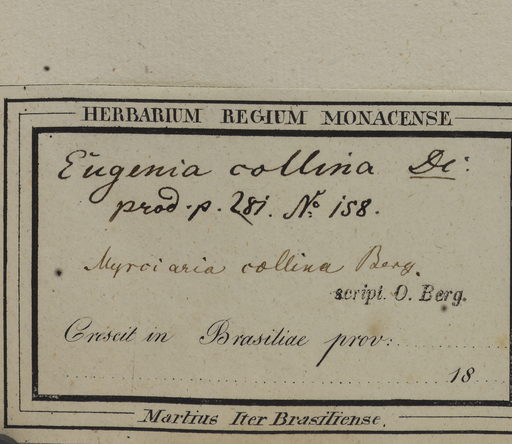 HERBARIUM REGIUM MONACENSE
Eugenia collina Dc:
prod. p. 281. No. 158.
Myrciaria collina Berg.
script. O. Berg.
Crescit in Brasiliae prov:
18
Martius Iter Brasiliense.